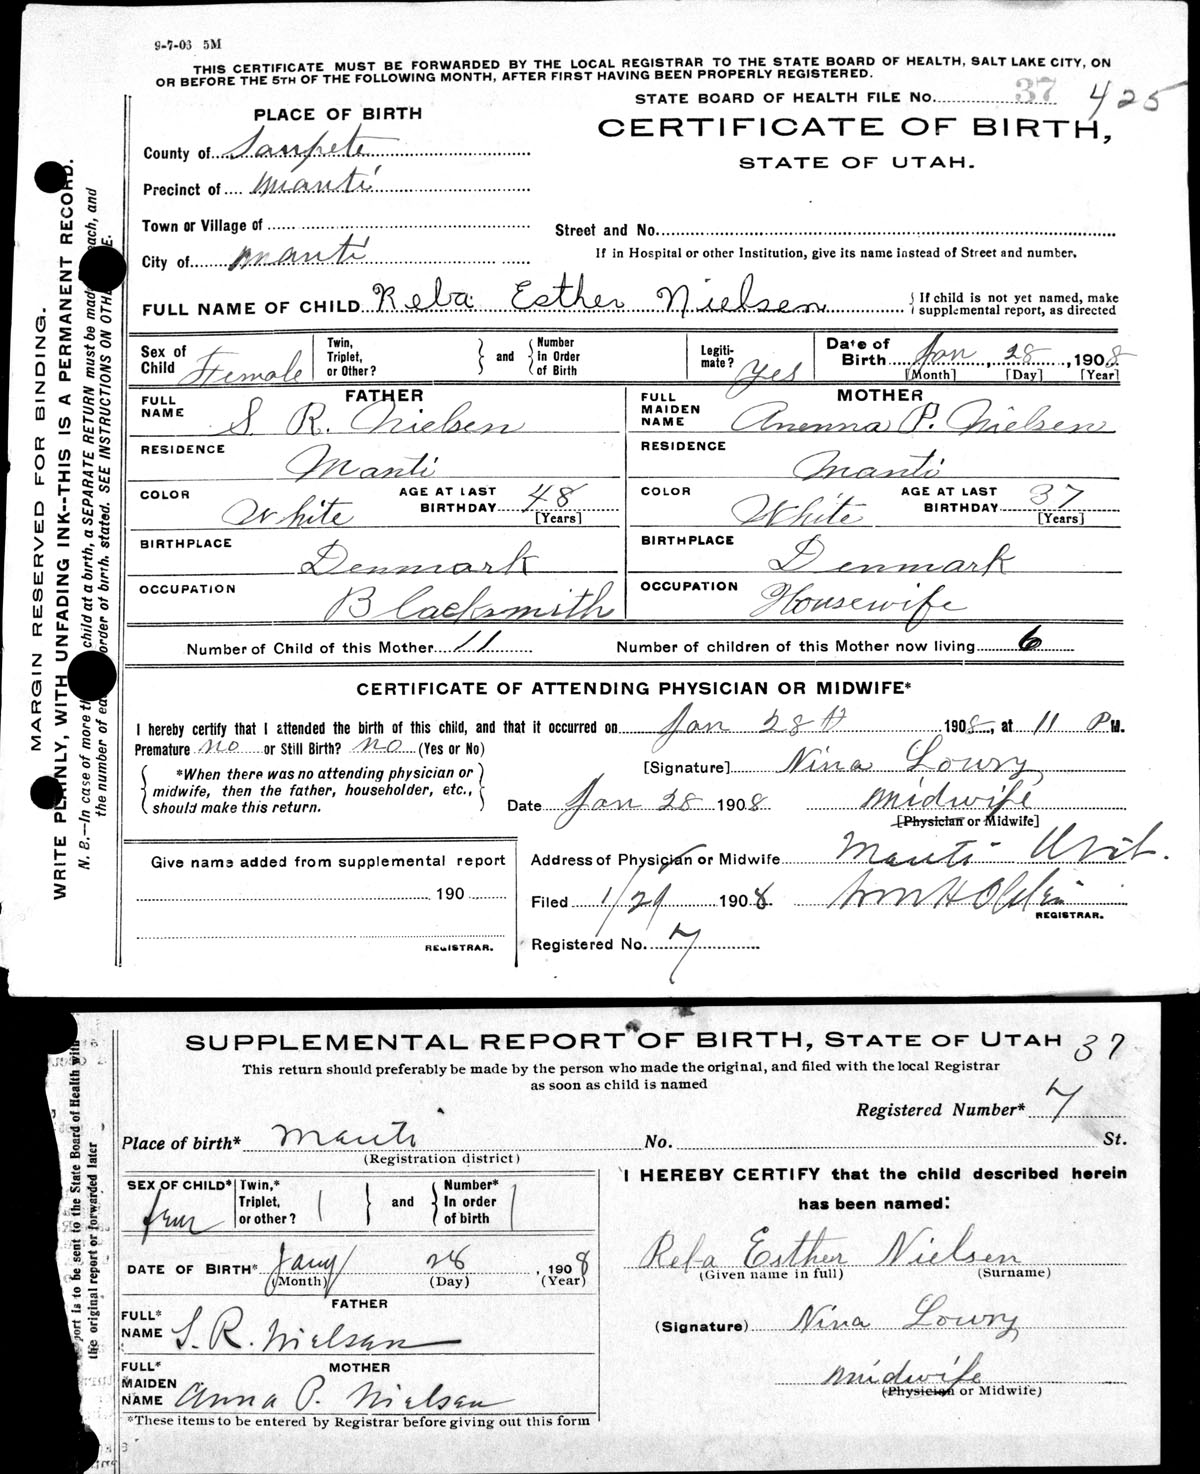 9-7-03 5M
THIS CERTIFICATE MUST BE FORWARDED BY THE LOCAL REGISTRAR TO THE STATE BOARD OF HEALTH, SALT LAKE CITY, ON
OR BEFORE THE 5TH OF THE FOLLOWING MONTH, AFTER FIRST HAVING BEEN PROPERLY REGISTERED.
STATE BOARD OF HEALTH FILE No. 37 425
PLACE OF BIRTH
CERTIFICATE OF BIRTH,
STATE OF UTAH.
County of Sanpete
Precinct of Manti
Town or Village of
Street and No.
City of Manti
If in Hospital or other Institution, give its name instead of Street and number.
FULL NAME OF CHILD Reba Esther Nielsen { If child is not yet named, make supplemental report, as directed
Sex of Child Female Twin, Triplet, or Other? } and { Number In Order of Birth Legiti-mate? Yes Date of Birth Jan 28, 1908
[Month] [Day] [Year]
FATHER
FULL NAME S. R. Nielsen
RESIDENCE Manti
COLOR White AGE AT LAST BIRTHDAY 48 [Years]
BIRTHPLACE Denmark
OCCUPATION Blacksmith
MOTHER
FULL MAIDEN NAME Anenna P. Nielsen
RESIDENCE Manti
COLOR White AGE AT LAST BIRTHDAY 37 [Years]
BIRTHPLACE Denmark
OCCUPATION Housewife
Number of Child of this Mother 11 Number of children of this Mother now living 6
CERTIFICATE OF ATTENDING PHYSICIAN OR MIDWIFE*
I hereby certify that I attended the birth of this child, and that it occurred on Jan 28th 1908, at 11 P M.
Premature no or Still Birth? no (Yes or No)
{ *When there was no attending physician or
midwife, then the father, householder, etc.,
should make this return. }
[Signature] Nina Lowry
Date Jan 28 1908 Midwife
[Physician or Midwife]
Give name added from supplemental report
190
REGISTRAR.
Address of Physician or Midwife Manti Utah.
Filed 1/29 1908 Wm H
REGISTRAR.
Registered No. 7
MARGIN RESERVED FOR BINDING.
WRITE PLAINLY, WITH UNFADING INK--THIS IS A PERMANENT RECORD.
N. B.—In case of more th child at a birth, a SEPARATE RETURN must be made each, and
the number of ea order of birth, stated. SEE INSTRUCTIONS ON OTHE E.
SUPPLEMENTAL REPORT OF BIRTH, STATE OF UTAH 37
This return should preferably be made by the person who made the original, and filed with the local Registrar
as soon as child is named
Registered Number* 7
Place of birth* Manti No. St.
(Registration district)
SEX OF CHILD* fem Twin,* Triplet, or other? } and { Number* In order of birth
DATE OF BIRTH* Jany 28, 1908
(Month) (Day) (Year)
FATHER
FULL* NAME S. R. Nielsen
MOTHER
FULL* MAIDEN NAME Anna P. Nielsen
*These items to be entered by Registrar before giving out this form
I HEREBY CERTIFY that the child described herein
has been named:
Reba Esther Nielsen
(Given name in full) (Surname)
(Signature) Nina Lowry
Midwife
(Physician or Midwife)
port is to be sent to the State Board of Health with
the original report or forwarded later